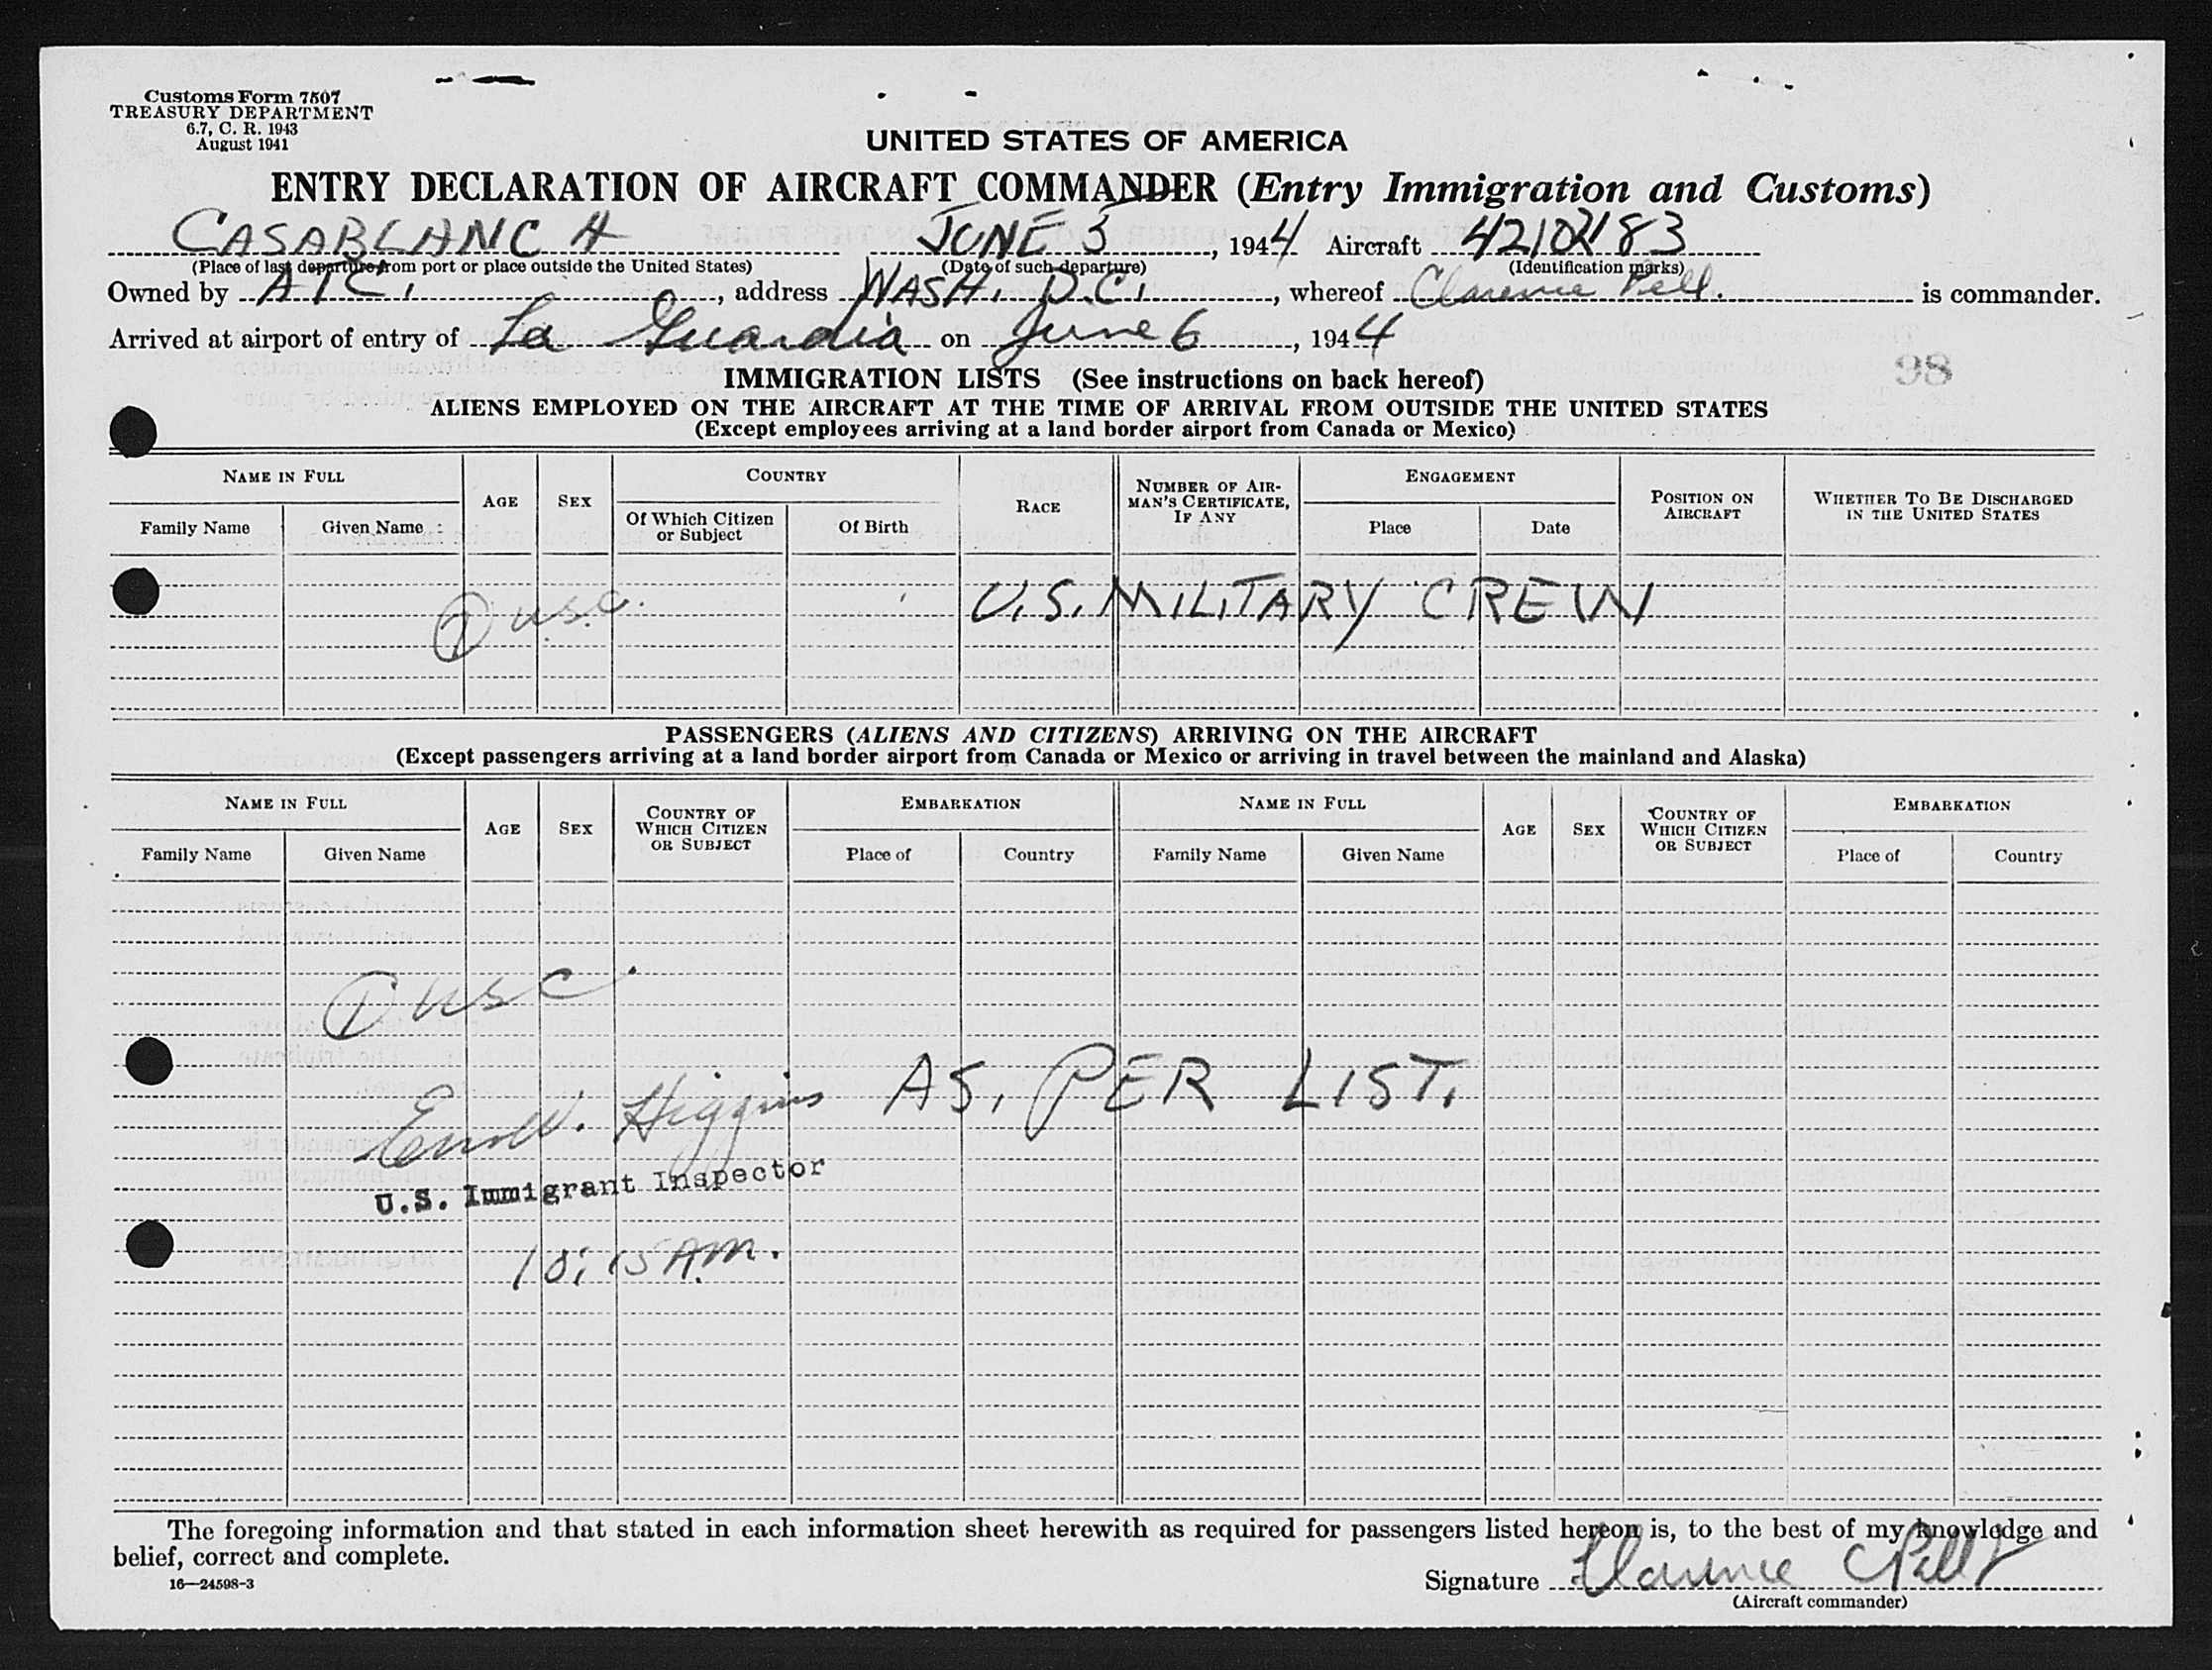 Customs Form 7507
TREASURY DEPARTMENT
6.7, C. R. 1943
August 1941
UNITED STATES OF AMERICA
ENTRY DECLARATION OF AIRCRAFT COMMANDER (Entry Immigration and Customs)
CASABLANCA JUNE 5, 1944 Aircraft 42102183
(Place of last departure from port or place outside the United States) (Date of such departure) (Identification marks)
Owned by ATC., address WASH. D.C., whereof Clarence Pell. is commander.
Arrived at airport of entry of La Guardia on June 6, 1944
98
IMMIGRATION LISTS (See instructions on back hereof)
ALIENS EMPLOYED ON THE AIRCRAFT AT THE TIME OF ARRIVAL FROM OUTSIDE THE UNITED STATES
(Except employees arriving at a land border airport from Canada or Mexico)
NAME IN FULL AGE SEX COUNTRY RACE NUMBER OF AIRMAN'S CERTIFICATE, IF ANY ENGAGEMENT POSITION ON AIRCRAFT WHETHER TO BE DISCHARGED IN THE UNITED STATES
Family Name Given Name Of Which Citizen or Subject Of Birth Place Date
7 USC. U.S. MILITARY CREW
PASSENGERS (ALIENS AND CITIZENS) ARRIVING ON THE AIRCRAFT
(Except passengers arriving at a land border airport from Canada or Mexico or arriving in travel between the mainland and Alaska)
NAME IN FULL AGE SEX COUNTRY OF WHICH CITIZEN OR SUBJECT EMBARKATION NAME IN FULL AGE SEX COUNTRY OF WHICH CITIZEN OR SUBJECT EMBARKATION
Family Name Given Name Place of Country Family Name Given Name Place of Country
1 USC.
W. Higgins AS. PER LIST.
U.S. Immigrant Inspector
10:15 AM.
The foregoing information and that stated in each information sheet herewith as required for passengers listed hereon is, to the best of my knowledge and
belief, correct and complete.
16—24598-3
Signature Clarence Pell
(Aircraft commander)